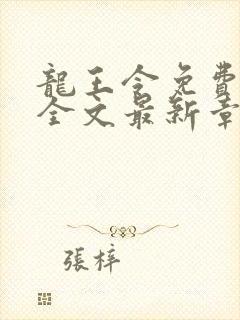 龍王令免費
全文最新章
張梓